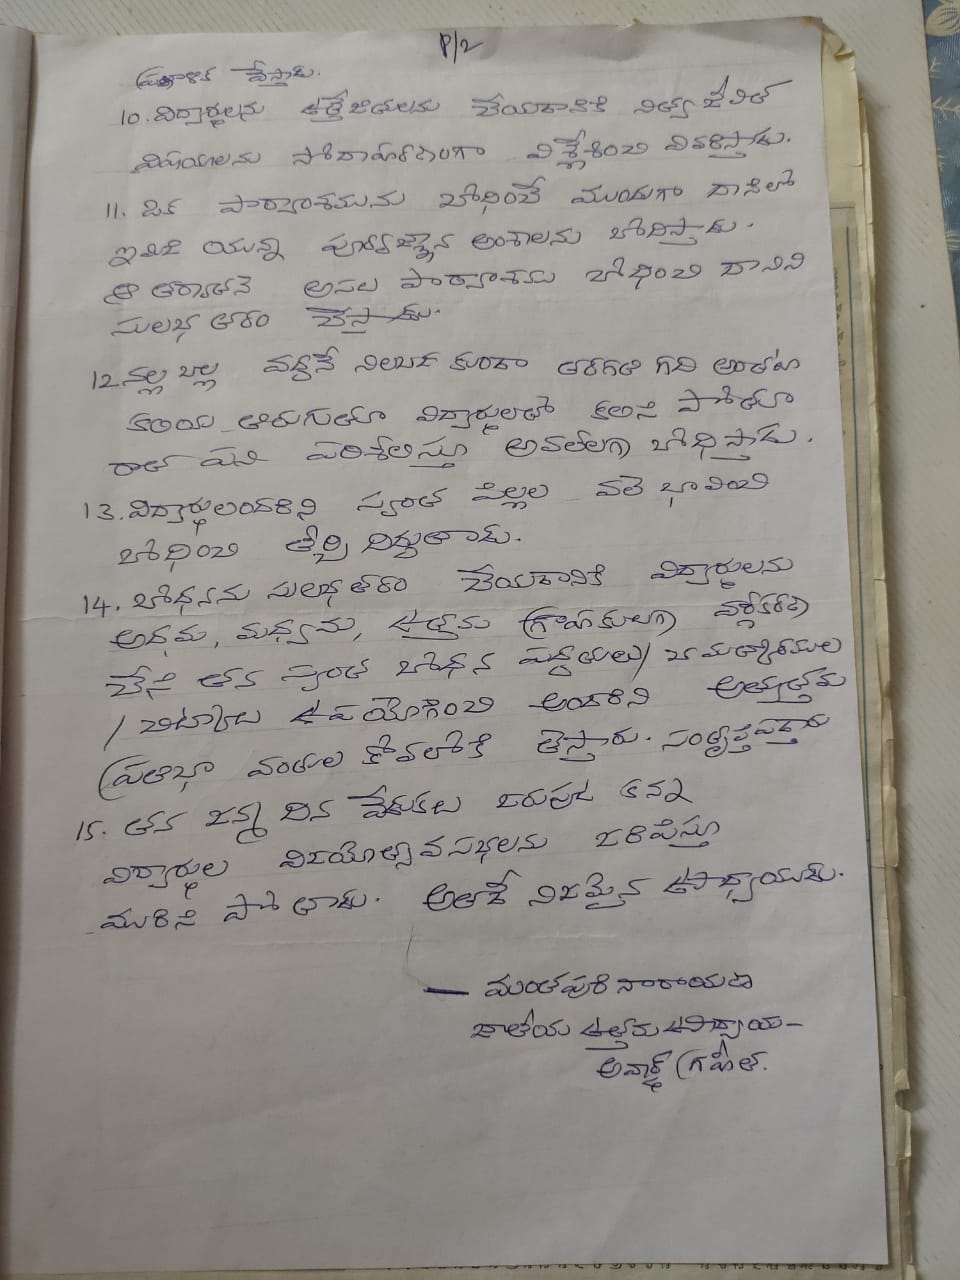 P/2
ప్రణాళిక వేస్తాడు.
10. విద్యార్థులను ఉత్తేజితులను చేయడానికి నిత్య జీవిత
విషయాలను సోదాహరణంగా విశ్లేశించి వివరిస్తాడు.
11. ఒక పాఠ్యాంశమును బోధించే ముందుగా దానిలో
ఇమిడి యున్న పూర్వజ్ఞాన అంశాలను బోధిస్తాడు.
ఆ తర్వాతనే అసలు పాఠ్యాంశము బోధించి దానిని
సులభ తరం చేస్తాడు.
12. నల్ల బల్ల వద్దనే నిలబడ కుండా తరగతి గది అంతటా
కలియ తిరుగుతూ విద్యార్థులతో కలిసి పోతూ
రాత పని పరిశీలిస్తూ అవలీలగా బోధిస్తాడు.
13. విద్యార్థులందరిని స్వంత పిల్లల వలె భావించి
బోధించి తీర్చి దిద్దుతాడు.
14. బోధనను సులభ తరం చేయడానికి విద్యార్థులను
అధమ, మధ్యమ, ఉత్తమ గ్రాహకులుగా వర్గీకరణ
చేసి తన స్వంత బోధన పద్ధతులు/ చమత్కారముల
/ చిట్కాలు ఉపయోగించి అందరిని అత్యుత్తమ
ప్రతిభా వంతుల కోవలోకి తెస్తారు. సంతృప్తిపడ్తారు
15. తన జన్మ దిన వేడుకలు జరుపుట కన్న
విద్యార్థుల విజయోత్సవ సభలను జరిపిస్తూ
మురిసి పోతాడు. అతడే నిజమైన ఉపాధ్యాయుడు.
— మంతపురి నారాయణ
జాతీయ ఉత్తమ ఉపాధ్యాయ –
అవార్డ్ గ్రహీత.